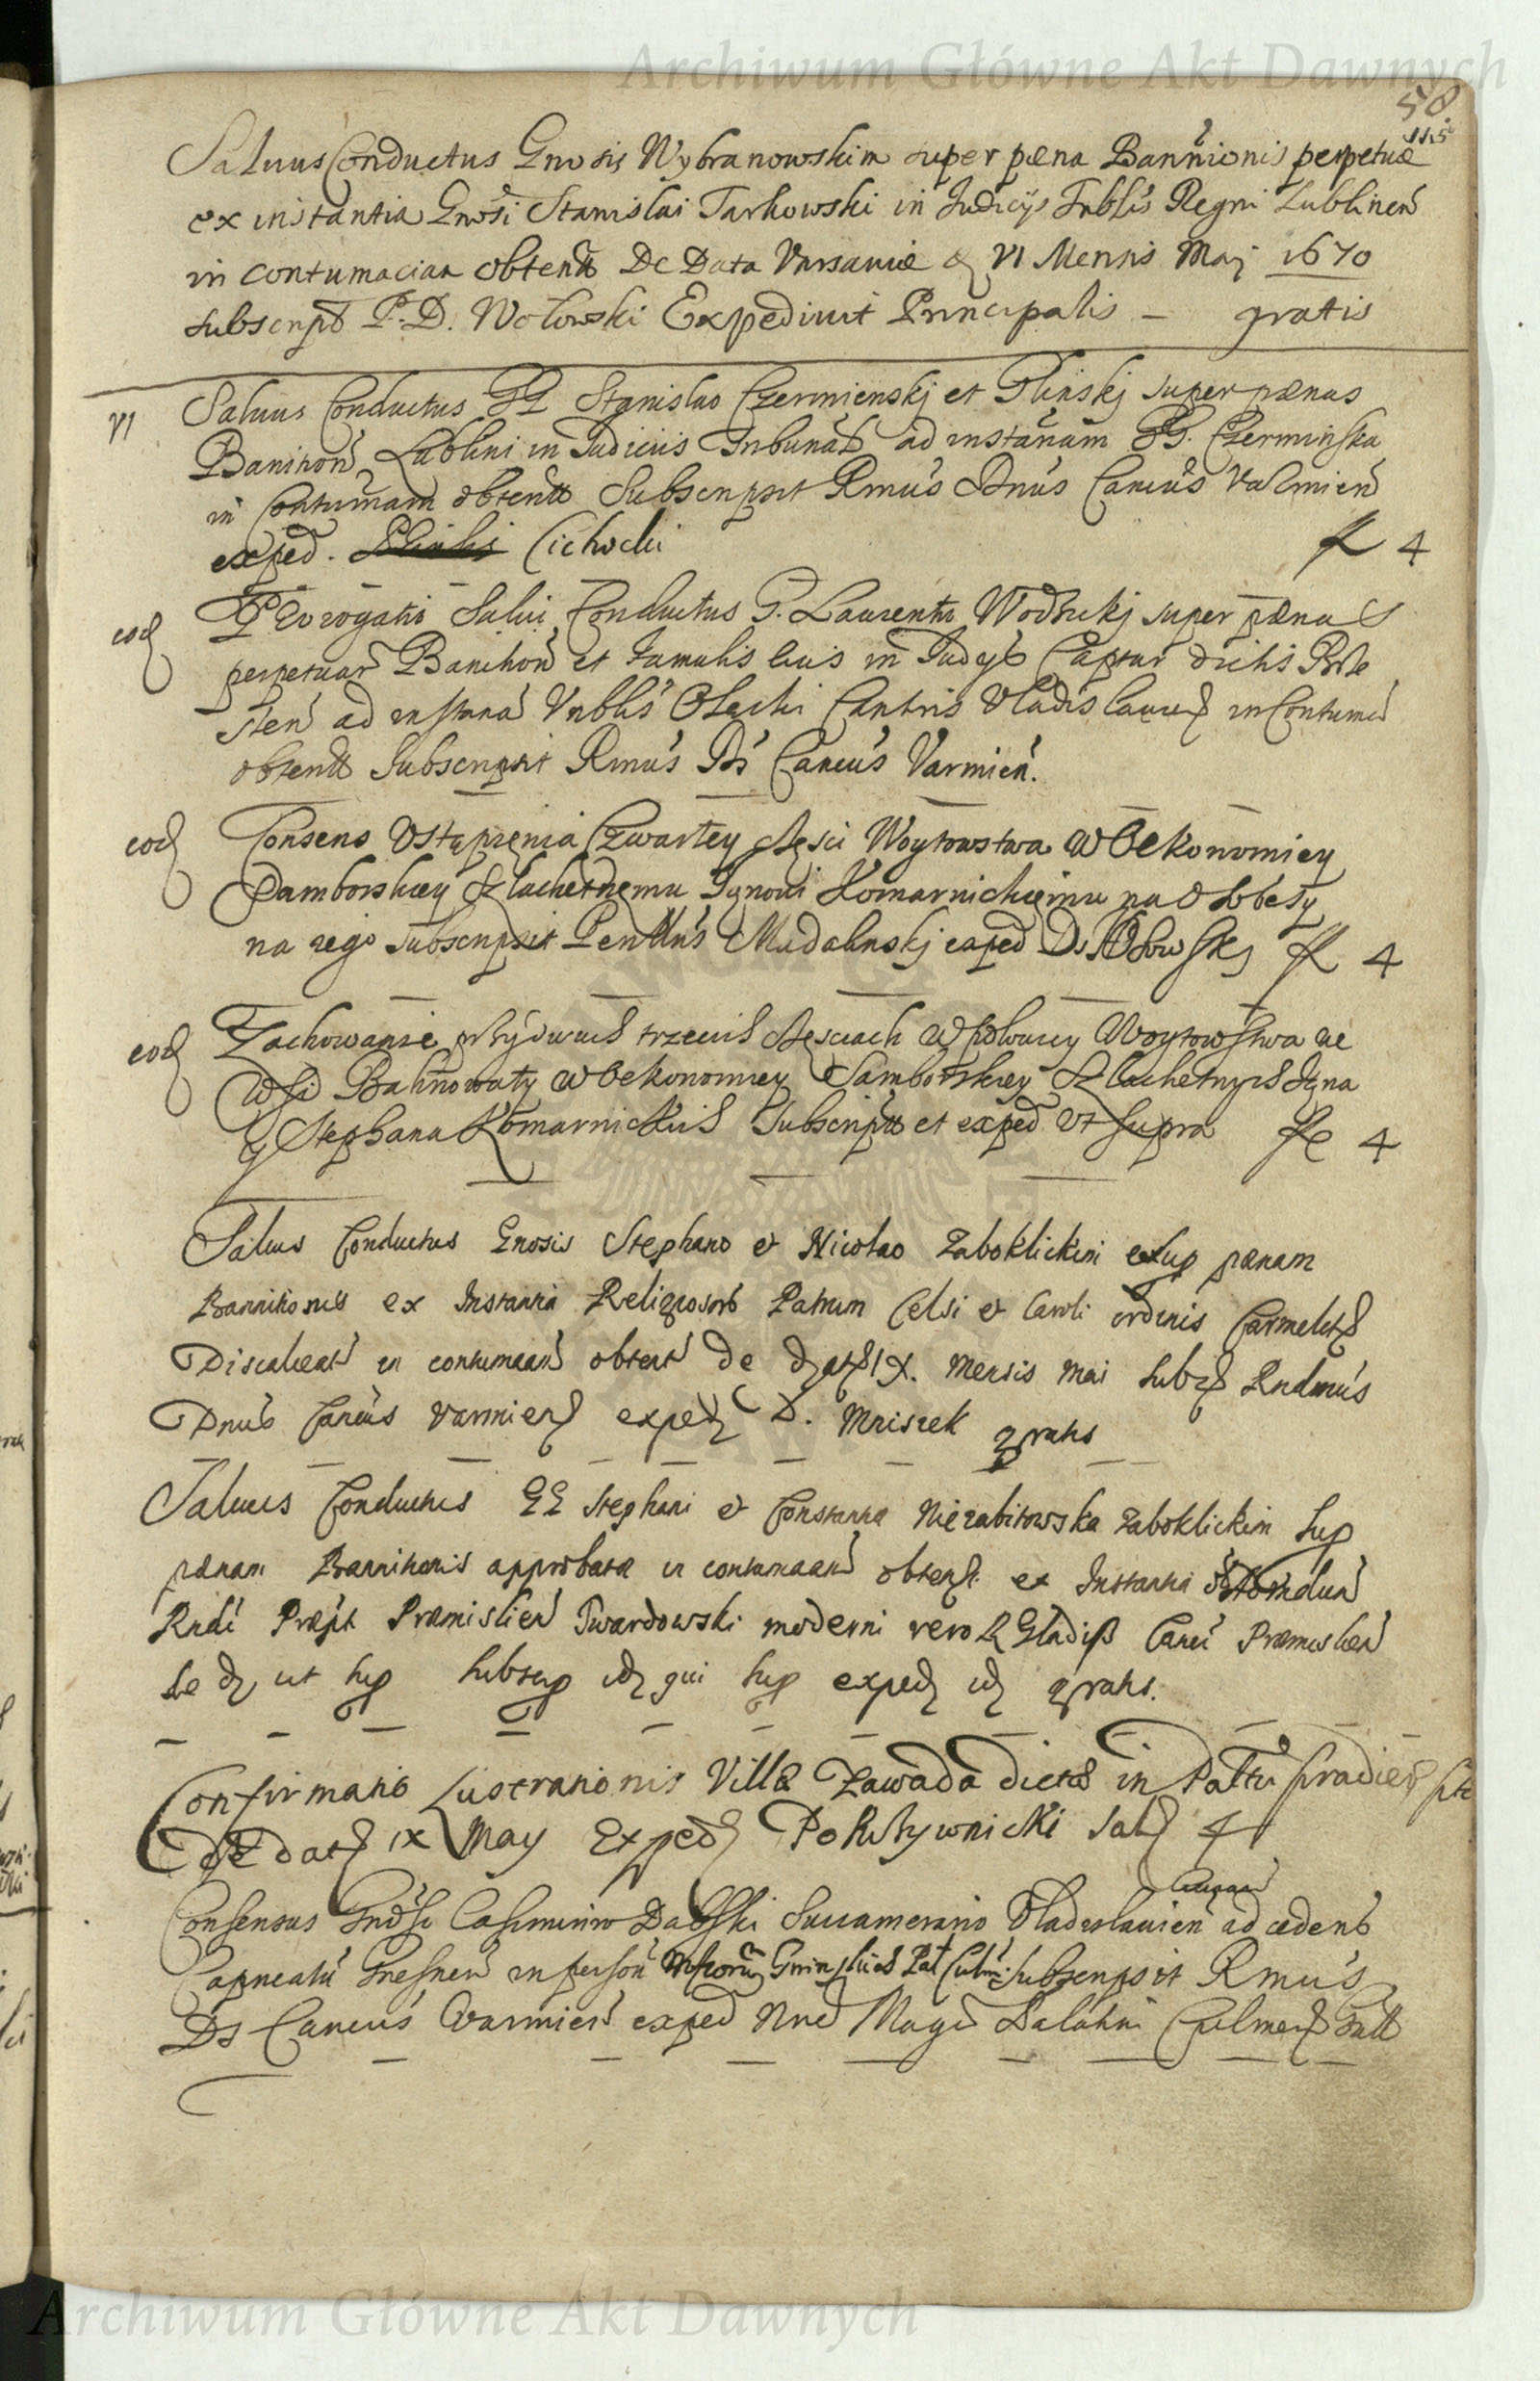 Archiwum Główne Akt Dawnych
58
115
Saluus Conductus Gnosis Wybranowskim super pœna Bannionis perpetuæ
ex instantia Gnosi Stanislai Tarkowski in Judicijs Trblis Regni Lublinen
in contumaciam obtent De Data Varsaviæ VI Mensis Maij 1670
subscript P. D. Wołowski Expedivit Principalis – gratis
VI Saluus Conductus GG Stanislao Czermienskj et Glinskj super pœnas
Banition Lublini in Judiciis Tribunal ad instanam G. Czerminska
in Contumam obtent Subscripsit Rmus Dnus Cancius Varmien
exped. Cichocki fl 4
eod Prorogatio Salui Conductus G. Laurentio Wodzickj super pœnas
perpetuar Banition et famulis eius in Judijs Captur
sten ad instana Vrblis Olęcki Cantris Vladislauien in Contumă
obtent Subscripsit Rmus Ds Cancius Varmien.
eod Consens Vstąpięnia Czwartey Częsci Woytowstwa w Oekonomiey
Samborskiey Szlachetnemu Jynowi Komarnickięmu na Osobę Sy
na iego subscripsit Per Illus Madalinskj exped Ds fl 4
eod Zachowanie przy dwuch trzecich Częsciach w połowicy Woytowstwa we
Wsi Bahnowaty w Oekonomiey Samborskiey Szlachetnych Jyna
y Stephana Komarnickich Subscript et exped Vt supra fl 4
Saluus Conductus Gnosis Stephano et Nicolao Zaboklickim sup pœnam
Bannitionis ex Instantia Religiosorũ Patrum Celsi et Caroli ordinis Carmelit
Discalceat in contumaciam obtent de dat IX. Mensis Mai subs Rndmus
Dnus Cancius varmien exped D. Mniszek gratis
Saluus Conductus GG Stephani et Constantia Niezabitowska Zaboklickim sup
pœnam Bannitionis approbatæ in contumaciam obtent. ex Instantia
Rndi Præpt Præmislien Twardowski moderni vero R Gładisz Canci Præmislien
de d ut sup subscrip id qui sup exped id gratis.
Confirmatio Lustrationis Villæ Zawada dictæ in Pattu siradien
de dat ix May Exped Pokrzywnicki sal 4
Consensus Gnoso Casimiro Dąbski Succamerario Vladislauien ad cedend
Capneatu Gnesnen in person Subscripsit Rmus
Ds Cancius Varmien exped Culmen
Archiwum Główne Akt Dawnych